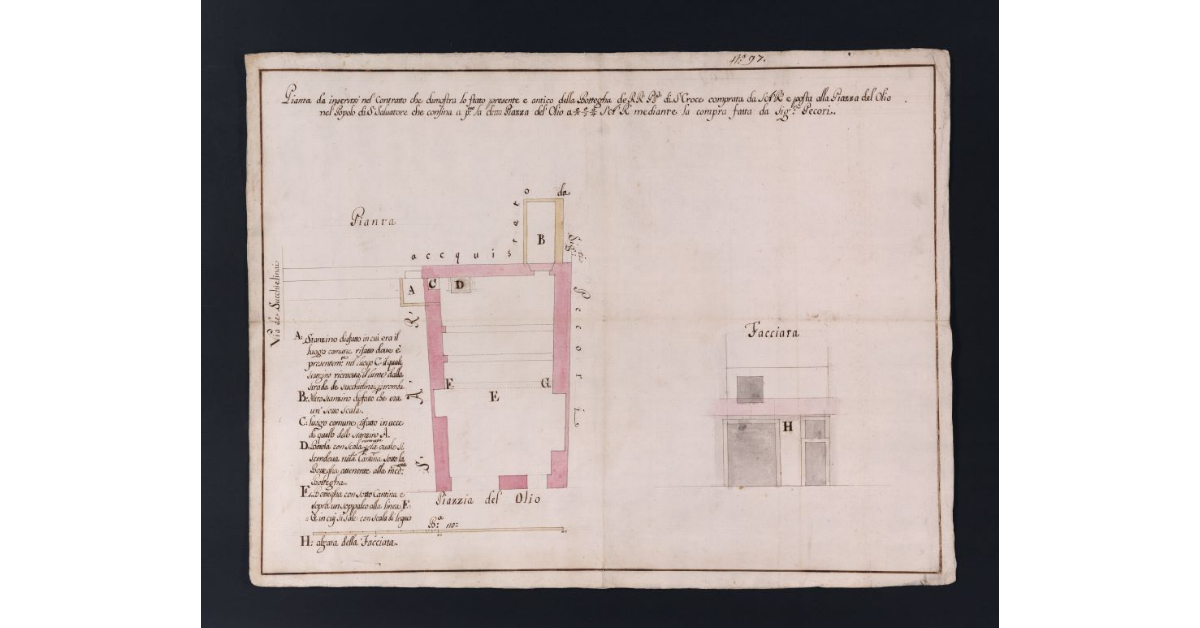 N.º 97.
Pianta da inserirsi nel Contratto che dimostra lo stato presente e antico della Bottegha de RR PP di S. Croce comprata da S. A. R. e posta alla Piazza del Olio
nel Popolo di S. Salvatore che confina a p.º la detta Piazza del Olio a S. A. R. mediante la compra fatta da Sig.ri Pecori..
Pianta
acquistato da
Sig.ri Pecori
S. A. R.
Via de Succhiellinai
B
A
C
D
F
G
E
Piazzia del Olio
A: Stanzino disfatto in cui era il
luogo comune rifatto di
present.e nel luogo C il quale
stanzino riceveva il lume dalla
B: Altro stanzino disfatto che era
un sotto scala.
C: luogo comune rifatto in vece
di quello dello stanzino A.
D: Botola con scala quale si
scendeva nella Cantina sotto la
Bottegha attenente alla
Bottegha.
E: Bottegha con sotto Cantina e
sopra un soppalco alla linea F.
G. in cui si sale con scala di legno
B.a 10:
H: alzata della Facciata.
Facciata
H